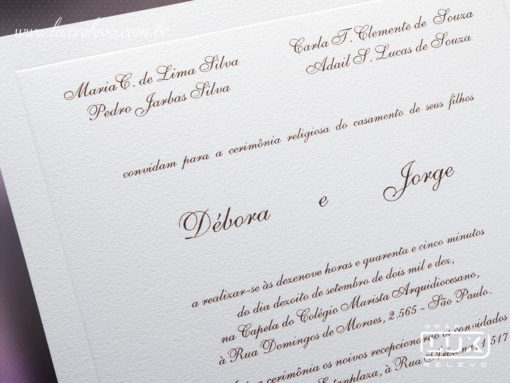 www.luxrelevo.com.br
Maria C. de Lima Silva
Pedro Jarbas Silva
Carla T. Clemente de Souza
Adail S. Lucas de Souza
convidam para a cerimônia religiosa do casamento de seus filhos
Débora e Jorge
a realizar-se às dezenove horas e quarenta e cinco minutos
do dia dezoito de setembro de dois mil e dez,
na Capela do Colégio Marista Arquidiocesano,
à Rua Domingos de Moraes, 2.565 - São Paulo.
cerimônia os noivos recepcionar convidados
à Rua 1517
LUX
RELEVO